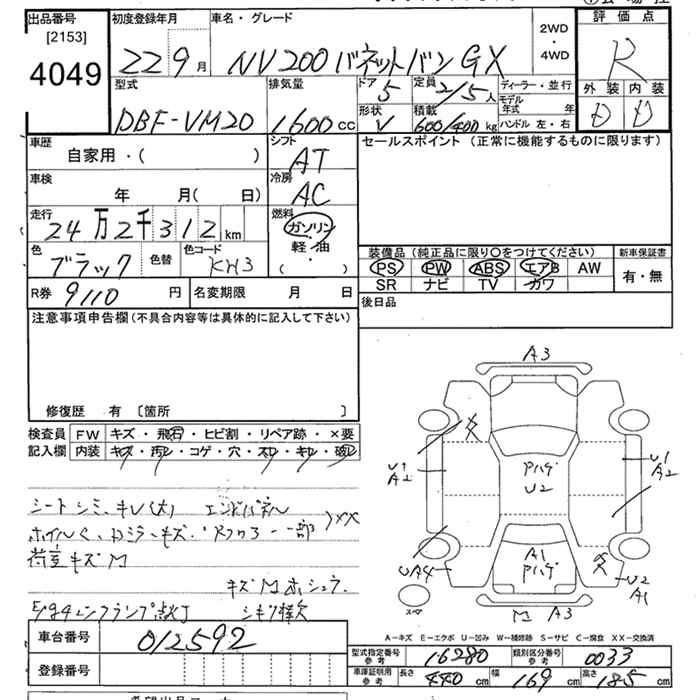 出品番号 [2153] 4049
初度登録年月 22 9月
車名・グレード NV200 バネットバン GX
2WD・4WD
評価点 R
外装 D 内装 D
型式 DBF-VM20
排気量 1600 cc
ドア 5 定員 2/5人
形状 V 積載 600/400 kg
ディーラー・並行
モデル年式 年
ハンドル 左・右
車歴 自家用・( )
シフト AT
セールスポイント (正常に機能するものに限ります)
車検 年 月( 日)
冷房 AC
走行 24万2千312 km
燃料 ガソリン 軽・油 ( )
色 ブラック 色替 色コード KH3
装備品 (純正品に限り○をつけてください)
PS PW ABS エアB AW
SR ナビ TV カワ
新車保証書 有・無
R券 9110 円 名変期限 月 日
後日品
注意事項申告欄 (不具合内容等は具体的に記入して下さい)
修復歴 有 [箇所 ]
検査員記入欄 FW キズ・飛石・ヒビ割・リペア跡・×要
内装 キズ・汚レ・コゲ・穴・スレ・キレ・破レ
シートシミ、キレ(大) エンドパネル
XX
荷室キズM
A3
U1
A2
Pハゲ
U2
U1
A2
A1
Pハゲ
UA4
U2
A1
スペア
M A3
A－キズ E－エクボ U－凹み W－補修跡 S－サビ C－腐食 XX－交換済
車台番号 012592
登録番号
型式指定番号 参考 16280 類別区分番号 参考 0033
車庫証明用 参考 長さ 440 cm 幅 169 cm 高さ 185 cm